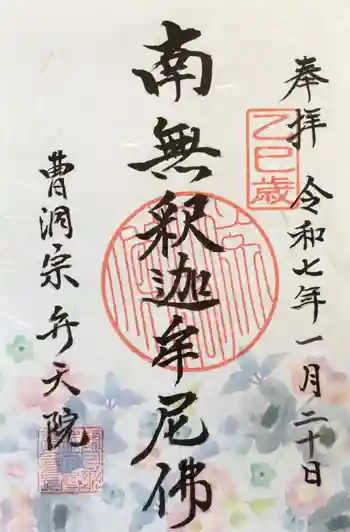 奉拝 令和七年一月二十日
乙巳歳
南無釈迦牟尼佛
曹洞宗 弁天院